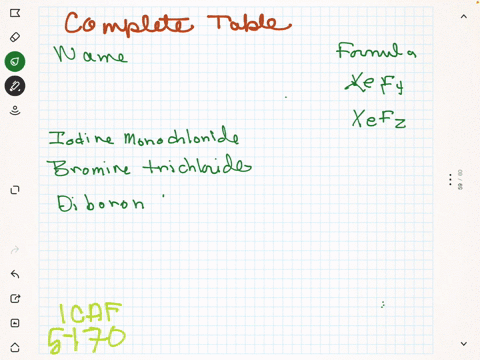 Complete Table
Name Formula
XeF4
XeF2
Iodine Monochloride
Bromine trichloride
Diboron
1CAF
5-170
59 / 60